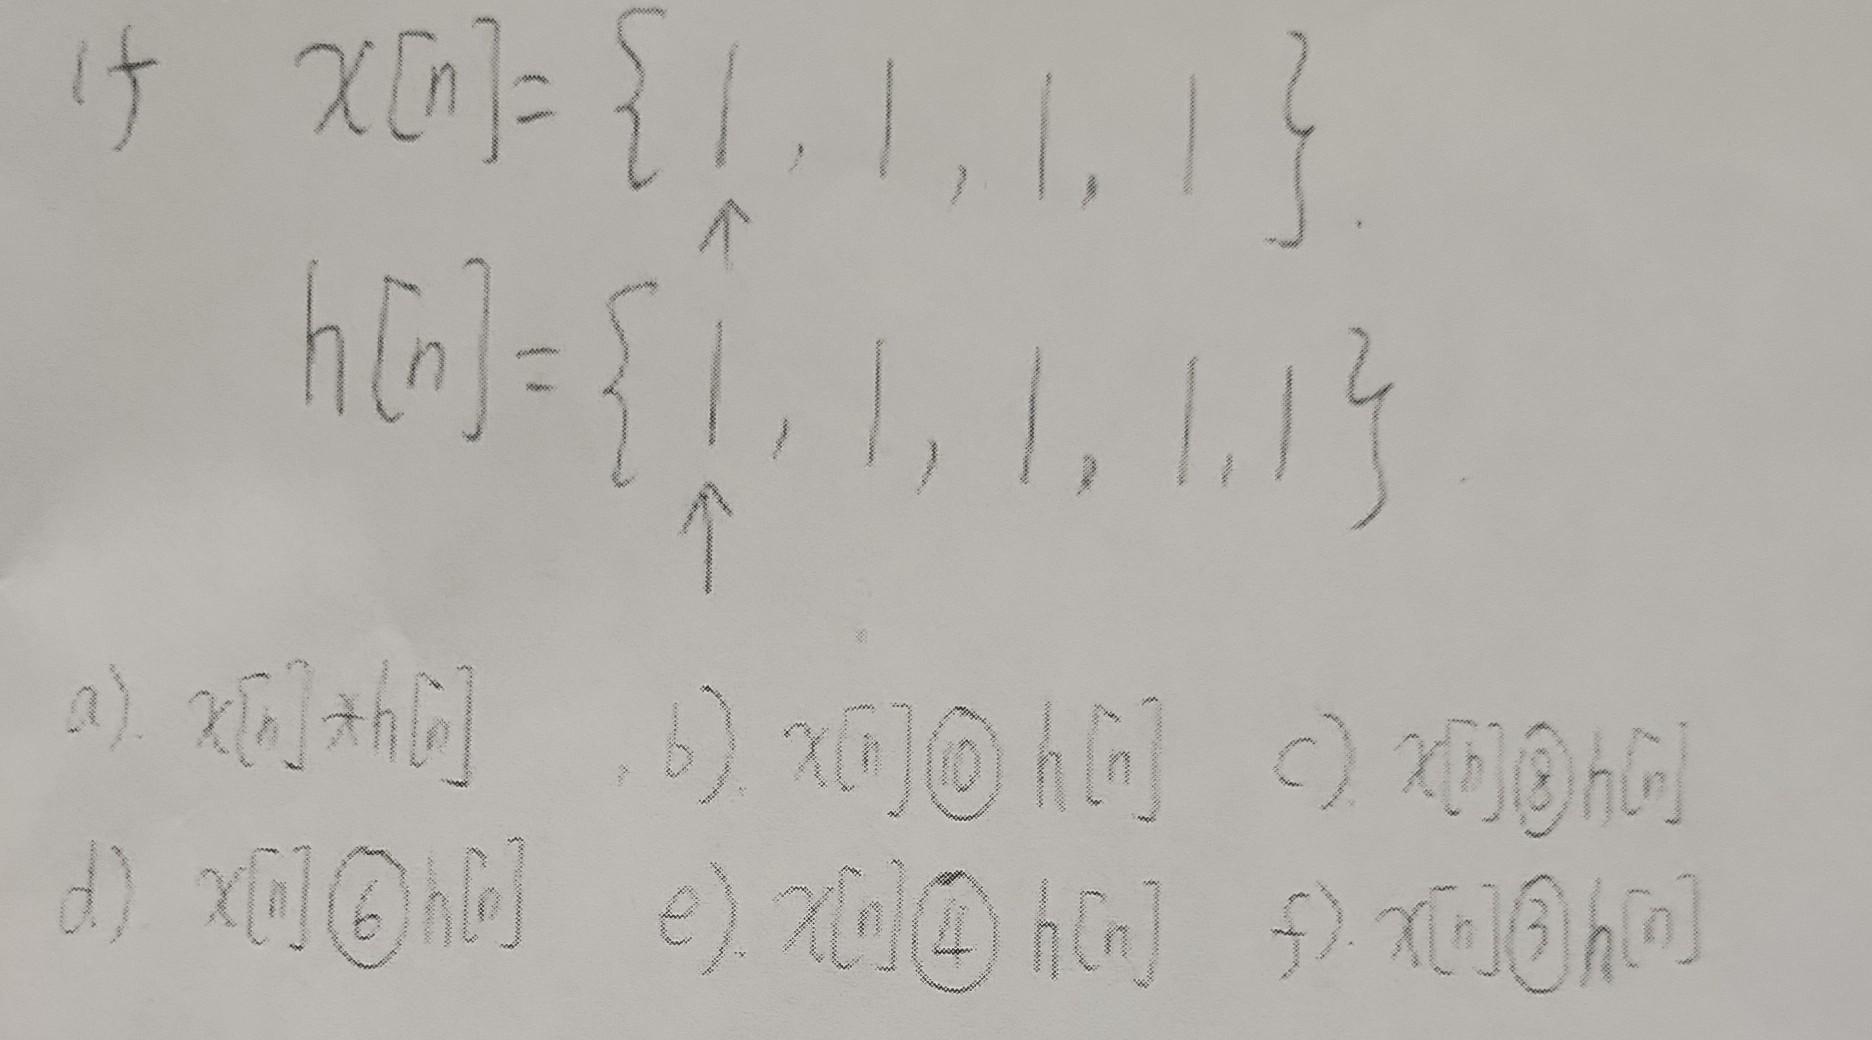 if x[n]= { 1 , 1 , 1 , 1 } .
↑
h[n]= { 1 , 1 , 1 , 1 , 1 } .
↑
a). x[n] * h[n] , b). x[n] ⑩ h[n] c). x[n] ⑧ h[n]
d). x[n] ⑥ h[n] e). x[n] ④ h[n] f). x[n] ③ h[n]